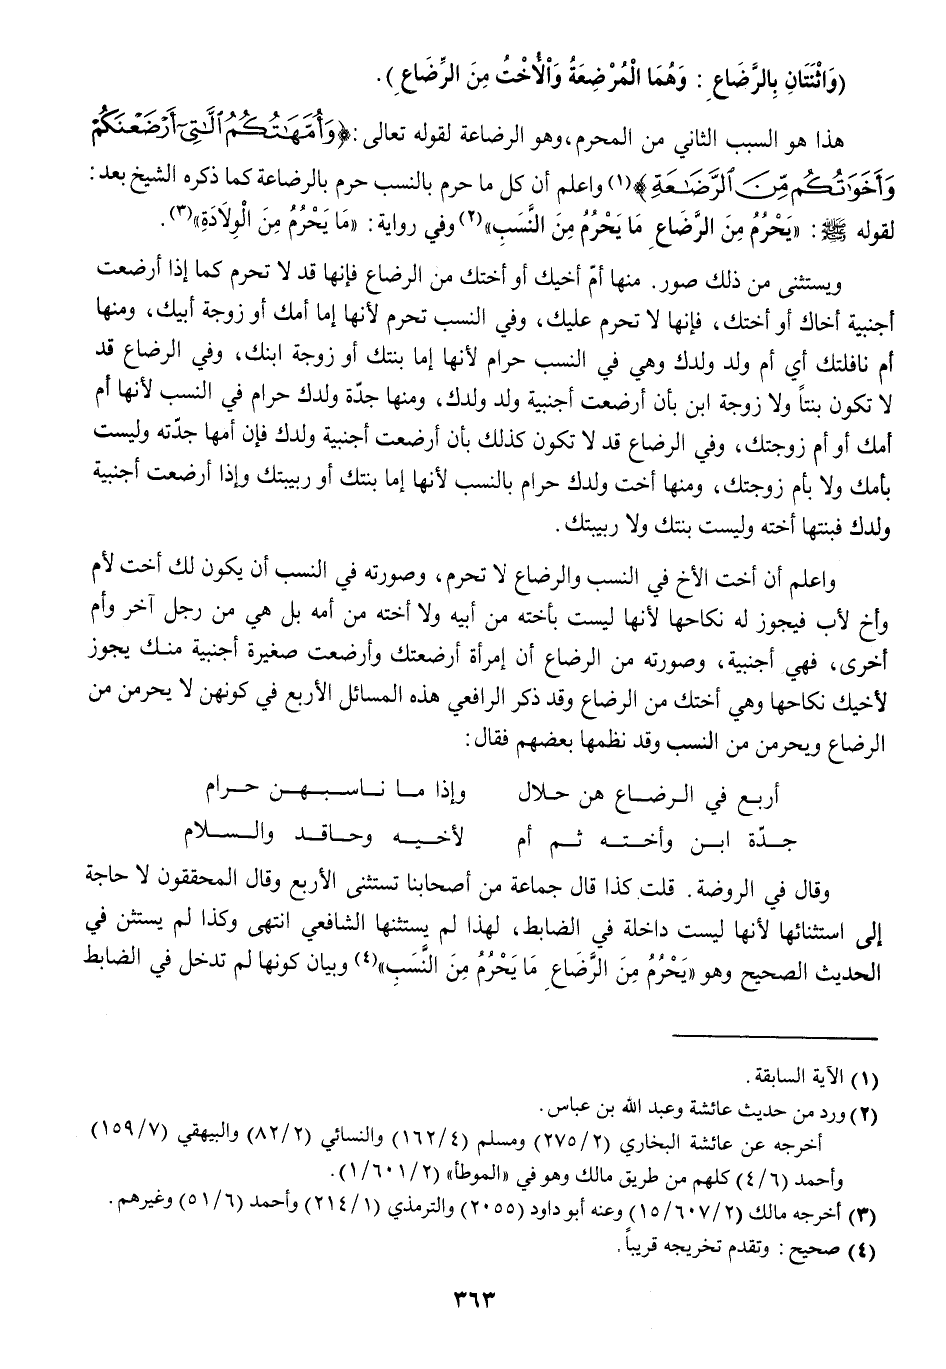 (وَاثْنَتَانِ بِالرَّضَاعِ : وَهُمَا الْمُرْضِعَةُ وَالْأُخْتُ مِنَ الرِّضَاعِ).
هذا هو السبب الثاني من المحرم، وهو الرضاعة لقوله تعالى: ﴿وَأُمَّهَاتُكُمُ الَّاتِي أَرْضَعْنَكُمْ
وَأَخَوَاتُكُم مِّنَ الرَّضَاعَةِ﴾(١) واعلم أن كل ما حرم بالنسب حرم بالرضاعة كما ذكره الشيخ بعد:
لقوله ﷺ: «يَحْرُمُ مِنَ الرَّضَاعِ مَا يَحْرُمُ مِنَ النَّسَبِ»(٢) وفي رواية: «مَا يَحْرُمُ مِنَ الْوِلَادَةِ»(٣).
ويستثنى من ذلك صور. منها أمّ أخيك أو أختك من الرضاع فإنها قد لا تحرم كما إذا أرضعت
أجنبية أخاك أو أختك، فإنها لا تحرم عليك، وفي النسب تحرم لأنها إما أمك أو زوجة أبيك، ومنها
أم نافلتك أي أم ولد ولدك وهي في النسب حرام لأنها إما بنتك أو زوجة ابنك، وفي الرضاع قد
لا تكون بنتاً ولا زوجة ابن بأن أرضعت أجنبية ولد ولدك، ومنها جدّة ولدك حرام في النسب لأنها أم
أمك أو أم زوجتك، وفي الرضاع قد لا تكون كذلك بأن أرضعت أجنبية ولدك فإن أمها جدّته وليست
بأمك ولا بأم زوجتك، ومنها أخت ولدك حرام بالنسب لأنها إما بنتك أو ربيبتك وإذا أرضعت أجنبية
ولدك فبنتها أخته وليست بنتك ولا ربيبتك.
واعلم أن أخت الأخ في النسب والرضاع لا تحرم، وصورته في النسب أن يكون لك أخت لأم
وأخ لأب فيجوز له نكاحها لأنها ليست بأخته من أبيه ولا أخته من أمه بل هي من رجل آخر وأم
أخرى، فهي أجنبية، وصورته من الرضاع أن إمرأة أرضعتك وأرضعت صغيرة أجنبية منك يجوز
لأخيك نكاحها وهي أختك من الرضاع وقد ذكر الرافعي هذه المسائل الأربع في كونهن لا يحرمن من
الرضاع ويحرمن من النسب وقد نظمها بعضهم فقال:
أربع في الرضاع هن حلال وإذا ما ناسبهن حرام
جدّة ابن وأخته ثم أم لأخيه وحافد والسلام
وقال في الروضة. قلت كذا قال جماعة من أصحابنا تستثنى الأربع وقال المحققون لا حاجة
إلى استثنائها لأنها ليست داخلة في الضابط، لهذا لم يستثنها الشافعي انتهى وكذا لم يستثن في
الحديث الصحيح وهو «يَحْرُمُ مِنَ الرَّضَاعِ مَا يَحْرُمُ مِنَ النَّسَبِ»(٤) وبيان كونها لم تدخل في الضابط
(١) الآية السابقة.
(٢) ورد من حديث عائشة وعبد الله بن عباس.
أخرجه عن عائشة البخاري (٢/٢٧٥) ومسلم (٤/١٦٢) والنسائي (٢/٨٢) والبيهقي (٧/١٥٩)
وأحمد (٦/٤) كلهم من طريق مالك وهو في «الموطأ» (٢/٦٠١/١).
(٣) أخرجه مالك (٢/٦٠٧/١٥) وعنه أبو داود (٢٠٥٥) والترمذي (١/٢١٤) وأحمد (٦/٥١) وغيرهم.
(٤) صحيح: وتقدم تخريجه قريباً.
٣٦٣